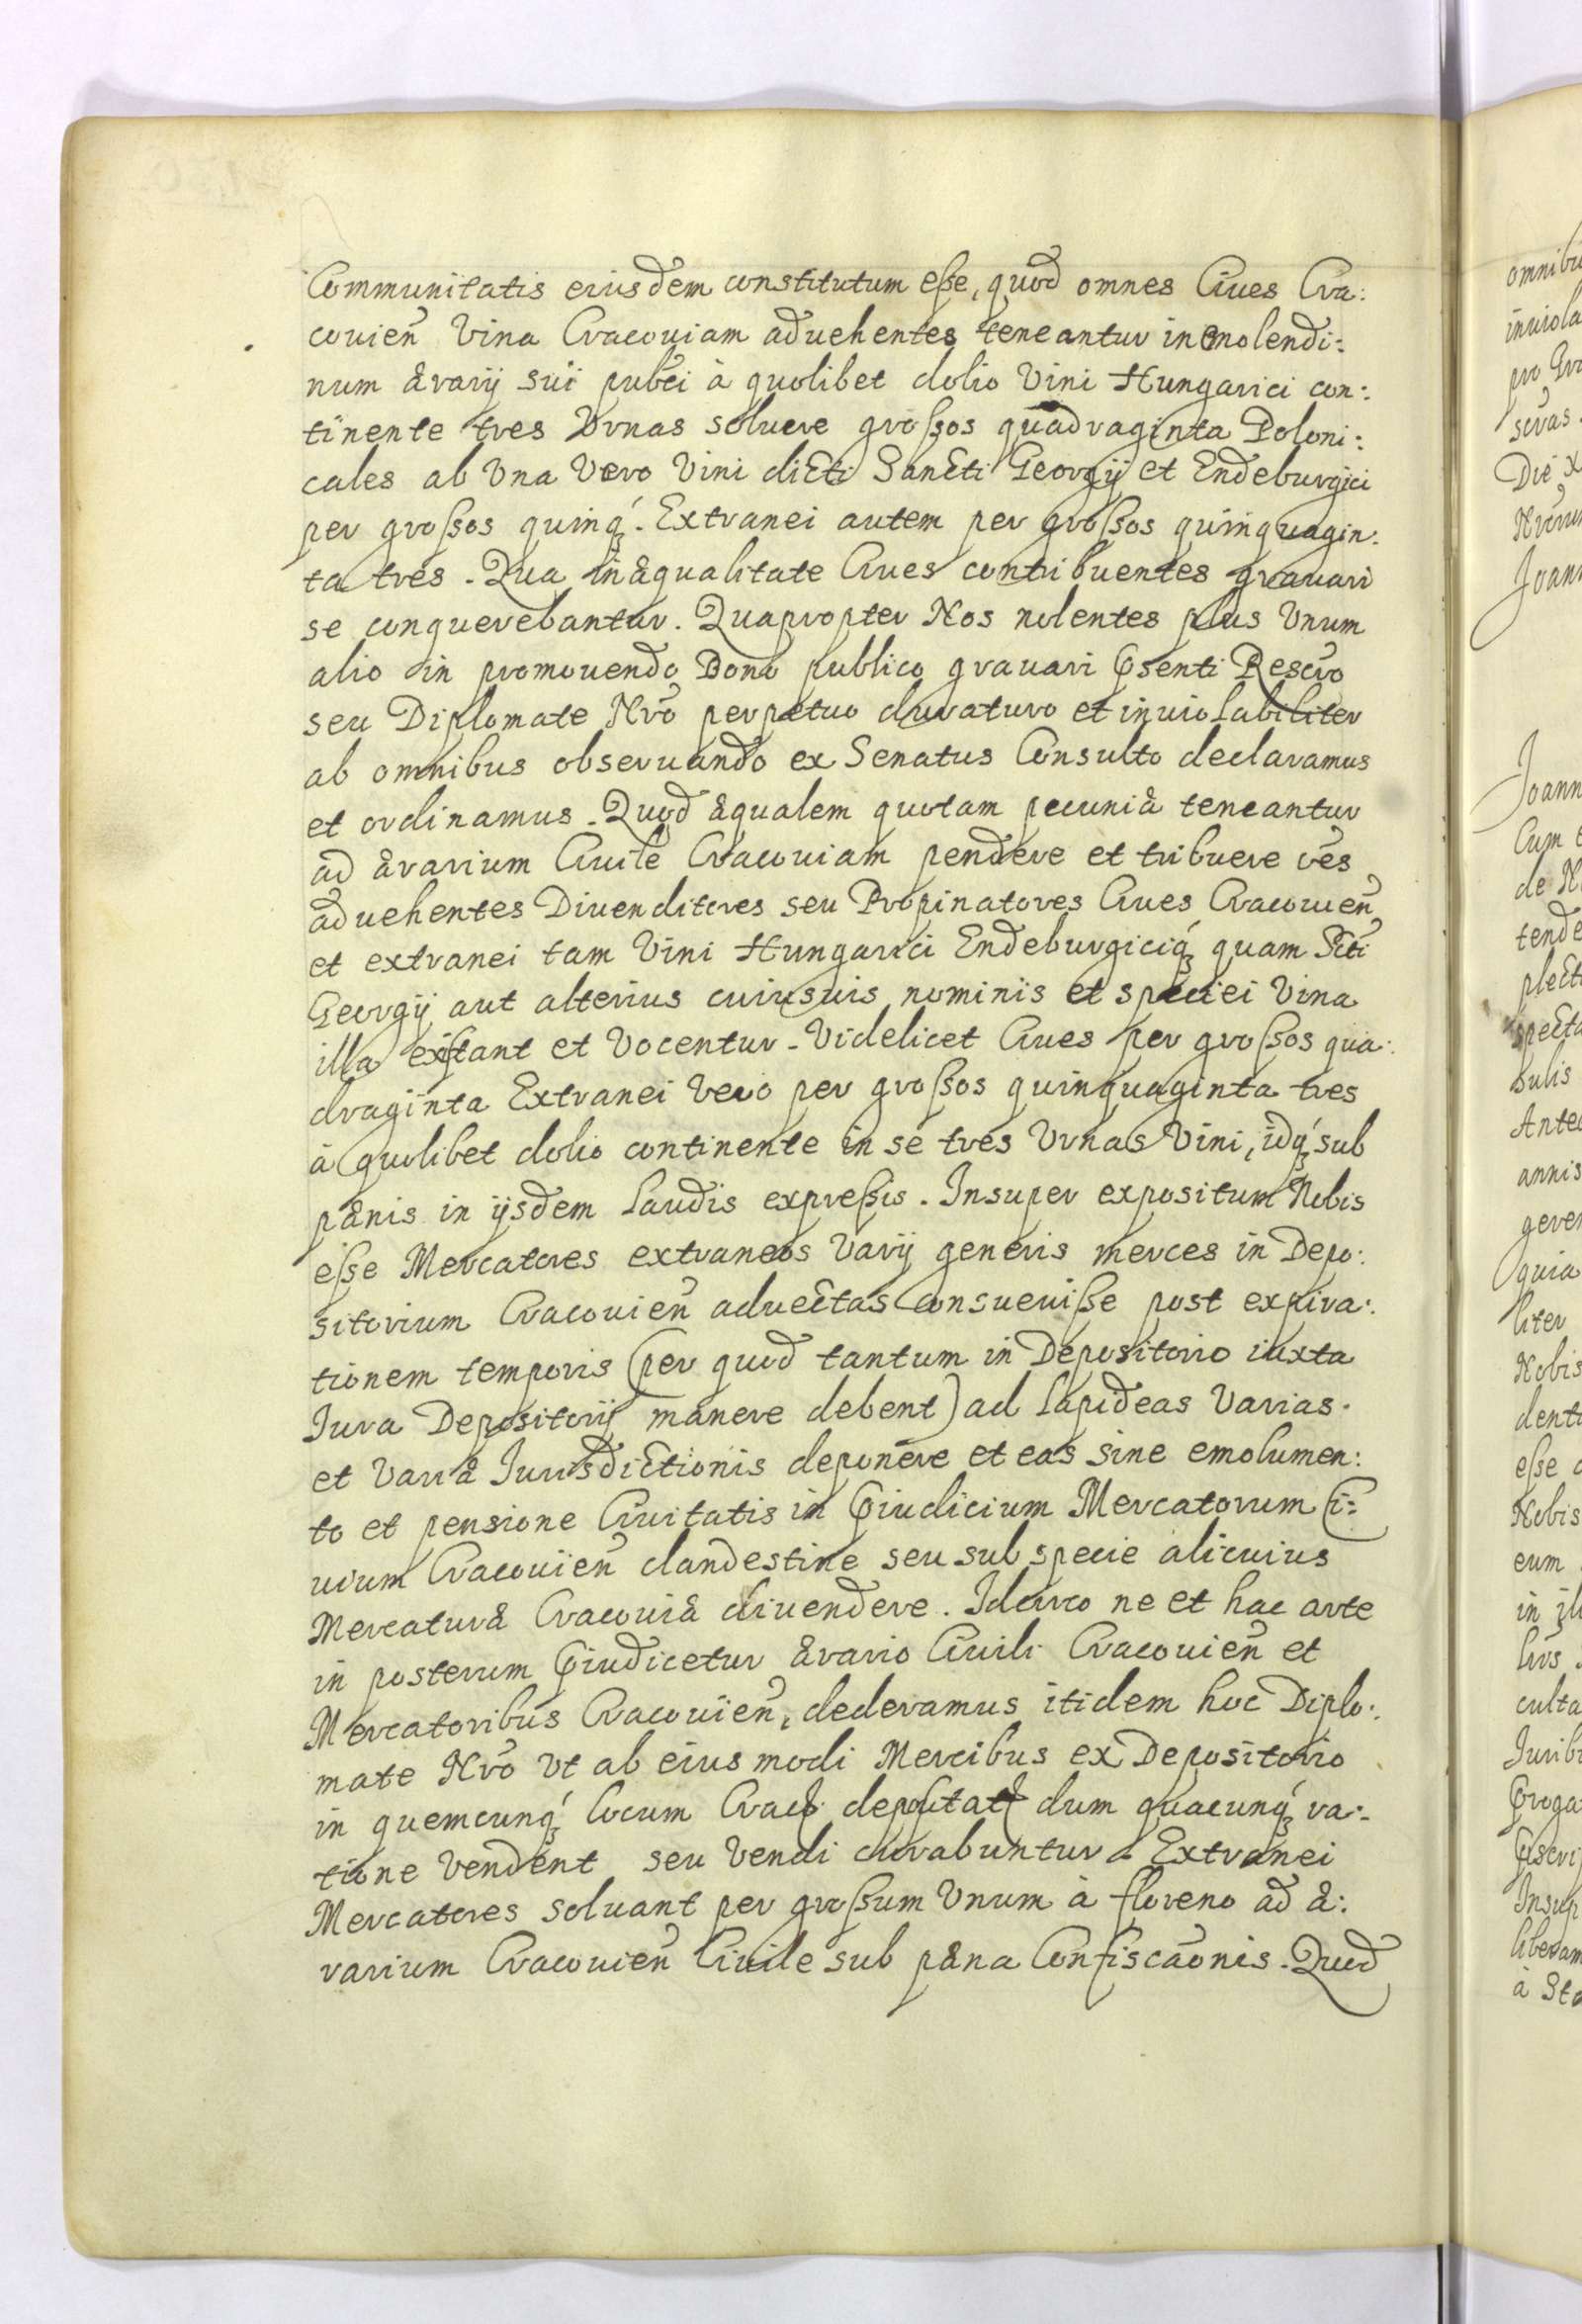 Communitatis eiusdem constitutum eße, quod omnes Ciues Cra:
couień Vina Cracouiam aduehentes teneantur in emolendi:
num ærarij sui pubci à quolibet dolio Vini Hungarici con:
tinente tres Vrnas soluere großos quadraginta Poloni:
cales ab Vna Vero Vini dicti Sancti Georgij et Endeburgici
per großos quinq́ꝫ. Extranei autem per großos quinquagin:
ta tres. Qua inæqualitate Ciues contribuentes grauari
se conquerebantur. Quapropter Nos nolentes plus Vnum
alio in promouendo Bono publico grauari Pṡenti Rescro
seu Diplomate Nrō perpetuo duraturo et inuiolabiliter
ab omnibus obseruando ex Senatus Consulto declaramus
et ordinamus. Quod æqualem quotam pecuniæ teneantur
ad ærarium Ciuile Cracouiam pendere et tribuere res
aduehentes Diuenditores seu Propinatores Ciues Cracouień
et extranei tam Vini Hungarici Endeburgiciq́ꝫ quam Scti
Georgij aut alterius cuiusuis nominis et speciei Vina
illa existant et Vocentur. Videlicet Ciues per großos qua:
draginta Extranei Vero per großos quinquaginta tres
à quolibet dolio continente in se tres Vrnas Vini, idq́ꝫ sub
pænis in ijsdem Laudis expreßis. Insuper expositum Nobis
eße Mercatores extraneos Varij generis merces in Depo:
sitorium Cracouień aduectas consueuiße post expira:
tionem temporis (per quod tantum in Depositorio iuxta
Iura Depositorij manere debent) ad Lapideas Varias.
et Variæ Iurisdictionis deponere et eas sine emolumen:
to et pensione Ciuitatis in Pṙiudicium Mercatorum Ci:
uium Cracouień clandestine seu sub specie alicuius
Mercaturæ Cracouiæ diuendere. Idcirco ne et hac arte
in posterum Pṙiudicetur ærario Ciuili Cracouień et
Mercatoribus Cracouień, declaramus itidem hoc Diplo:
mate Nrō Vt ab eius modi Mercibus ex Depositorio
in quemcunq́ꝫ locum Crac. deportatis dum quacunq́ꝫ ra:
tione Vendent seu Vendi curabuntur à Extranei
Mercatores soluant per großum Vnum à floreno ad æ:
rarium Cracouień Ciuile sub pæna Confiscãonis. Quod